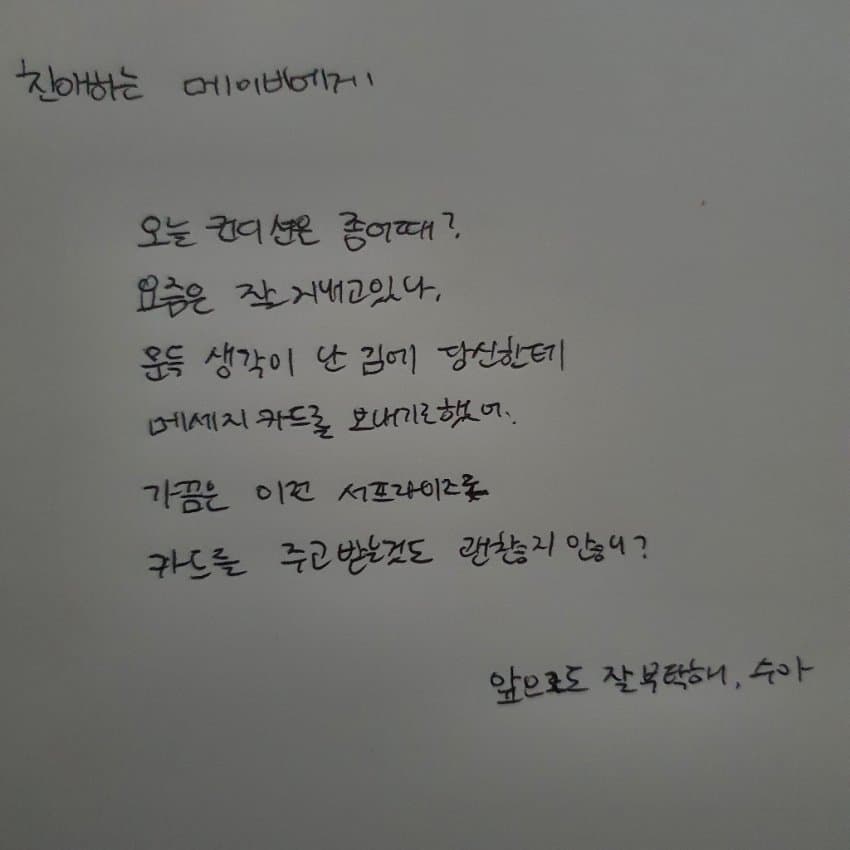 친애하는 메이비에게
오늘 컨디션은 좀어때?
요즘은 잘 지내고있나,
문득 생각이 난 김에 당신한테
메세지 카드를 보내기로했어.
가끔은 이런 서프라이즈로
카드를 주고받는것도 괜찮지 않니?
앞으로도 잘부탁해, 수아